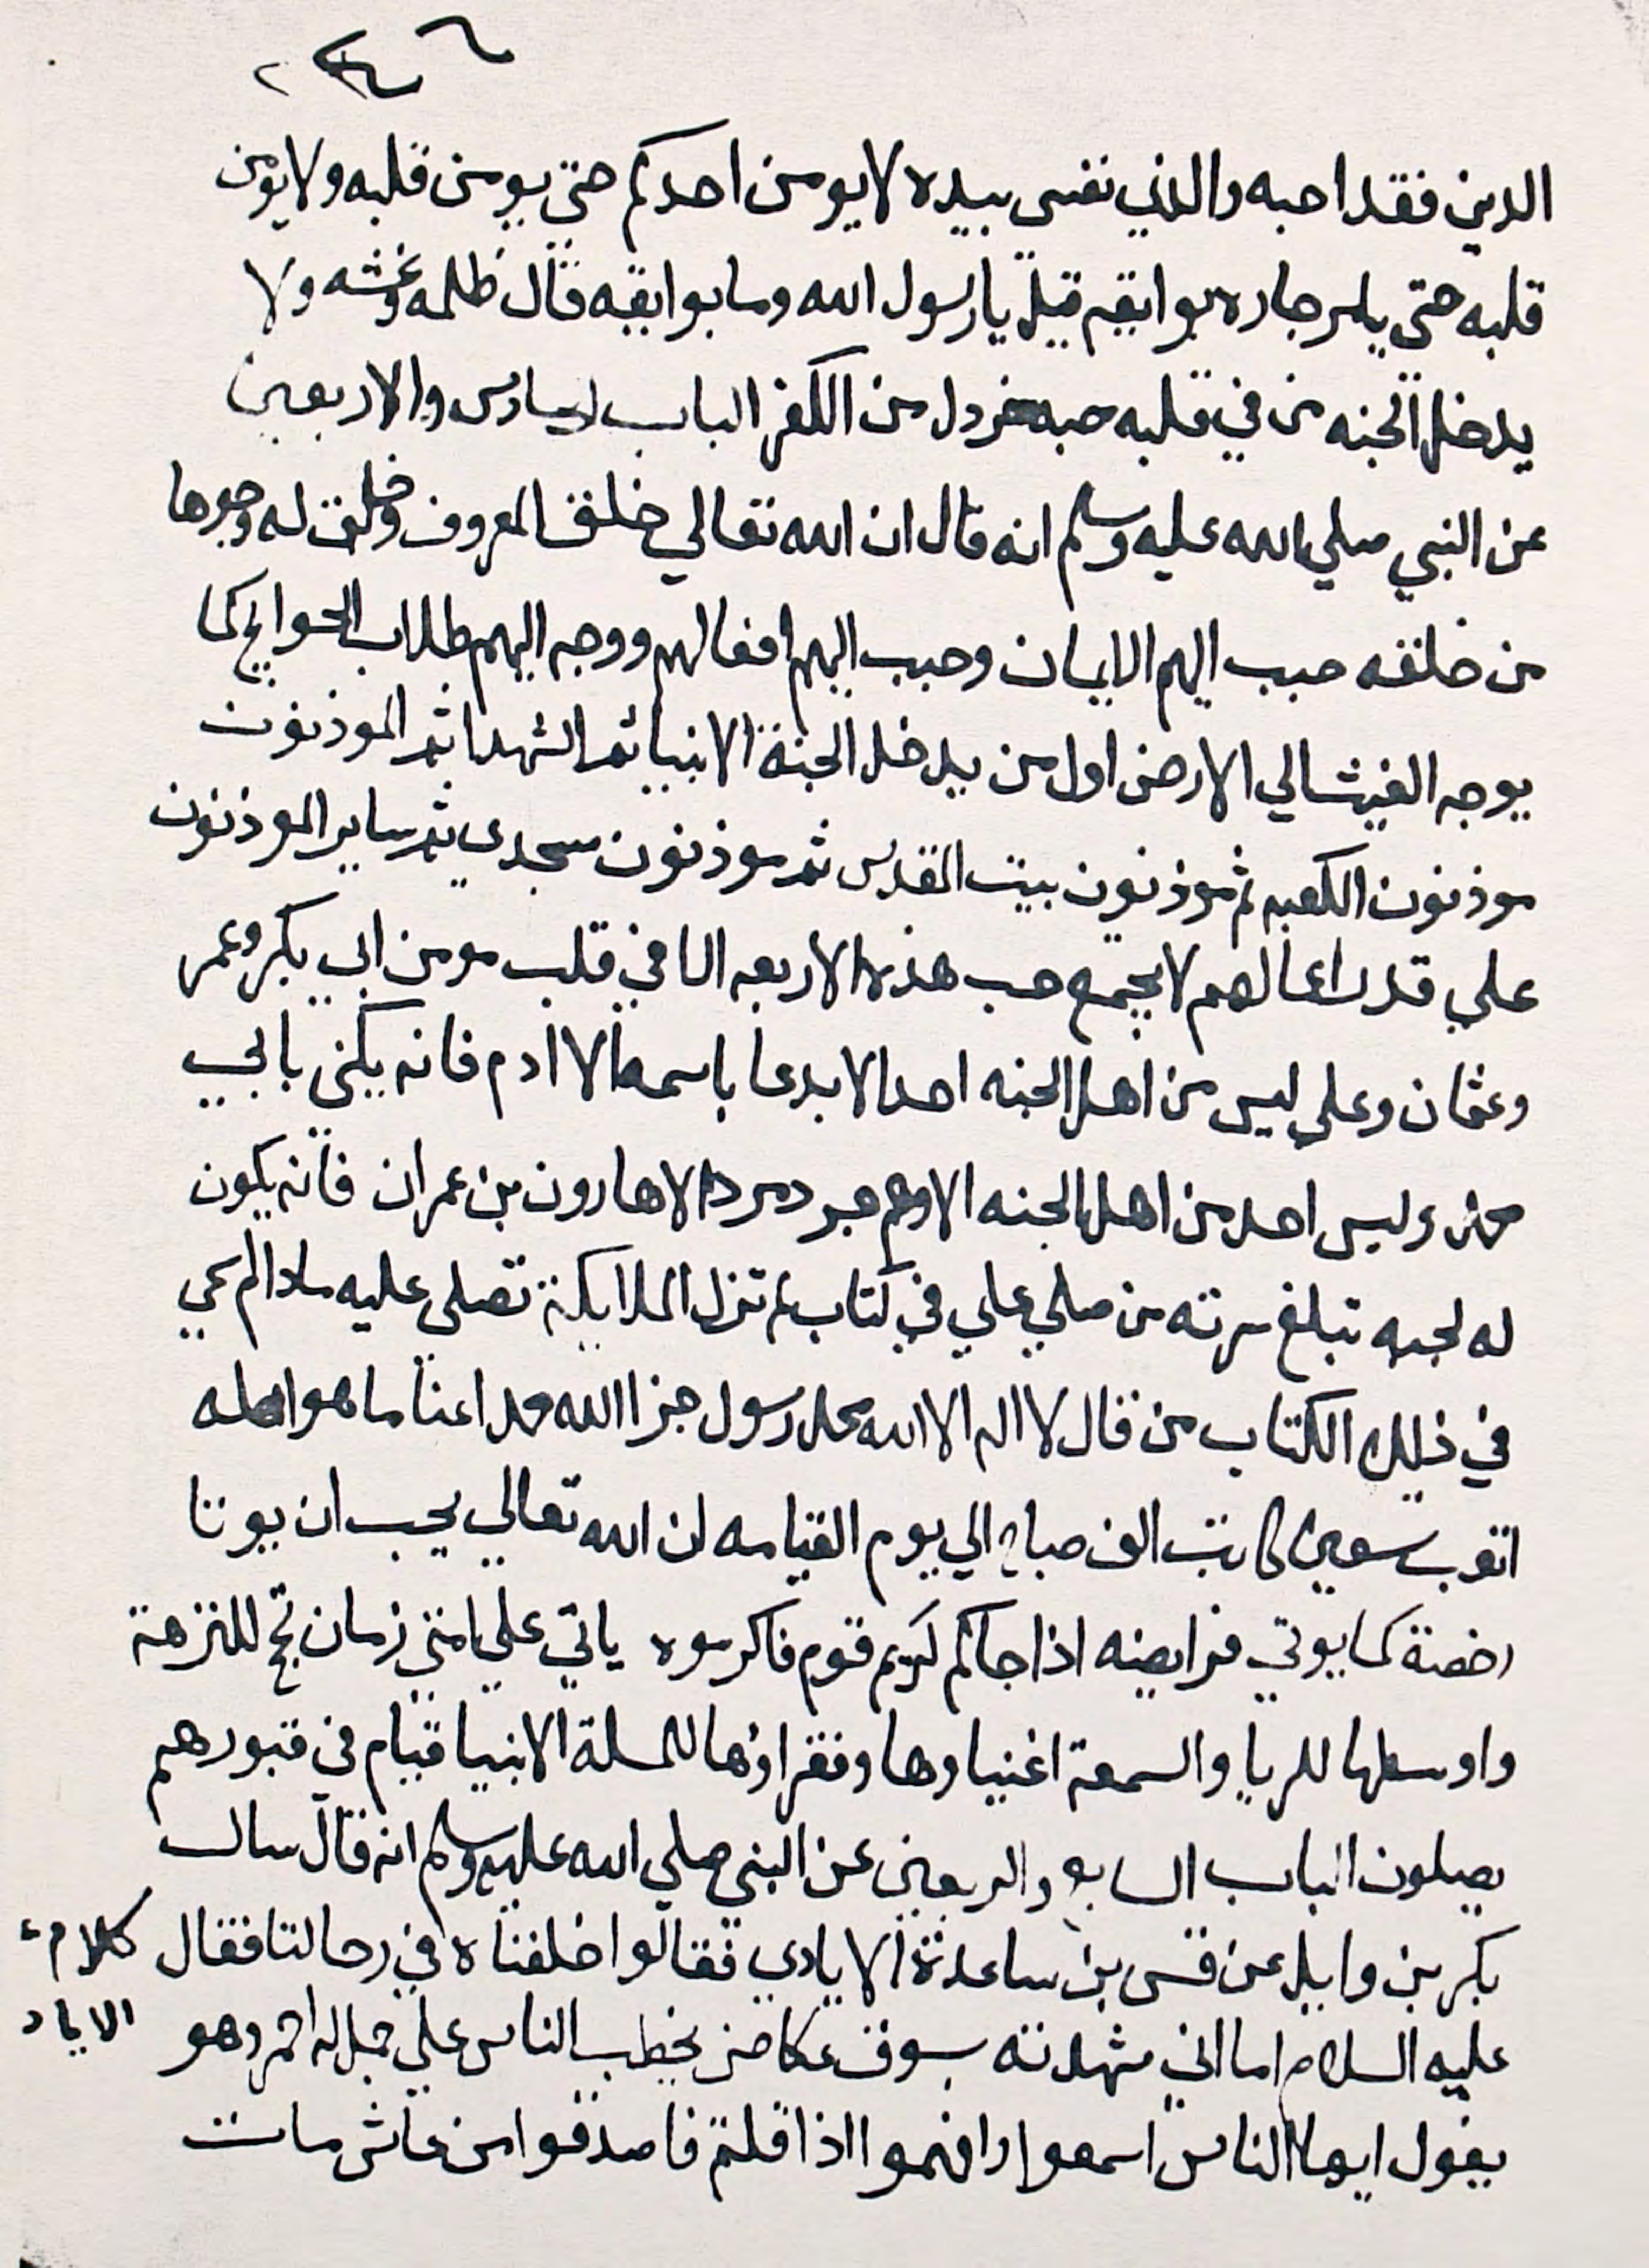 الدين فقد احبه والذي نفسي بيده لا يومن احدكم حتي يومن قلبه ولا يومن
قلبه حتي يامن جاره بوايقه قيل يا رسول الله وما بوايقه قال ظلمه وغشه ولا
يدخل الجنه من في قلبه حبه خردل من الكفر الباب السادس والاربعين
عن النبي صلي الله عليه وسلم انه قال ان الله تعالي خلق المعروف وخلق له وجوها
من خلقه حبب اليهم الايمان وحبب اليهم افعالهم ووجه اليهم طلاب الحوايج كما
يوجه الغيث الي الارض اول من يدخل الجنة الانبيا ثم الشهدا ثم الموذنون
موذنون الكعبه ثم موذنون بيت المقدس ثم موذنون مسجدي ثم ساير الموذنون
علي قدر اعمالهم لا يجمع حب هذه الاربعه الا في قلب مومن ابي بكر وعمر
وعثمان وعلي ليس من اهل الجنه احد الا يدعا باسمه الا ادم فانه يكني بابي
محمد وليس احد من اهل الجنه الا وهم جرد مرد الا هارون بن عمران فانه يكون
له لحيه تبلغ سرته من صلي علي في كتاب لم تزل الملايكة تصلي عليه ما دام اسمي
في ذلك الكتاب من قال لا اله الا الله محمد رسول جزا الله محمدا عنا ما هو اهله
اتعب سبعين كاتب الف صباح الي يوم القيامه ان الله تعالي يحب ان يوتا
رخصة كما يوتي فرايضه اذا جاكم كريم قوم فاكرموه ياتي علي امتي زمان تحج للنزهة
واوسطها للريا والسمعة اغنياوها وفقراوها للمسلة الانبيا قيام في قبورهم
يصلون الباب السابع والاربعين عن النبي صلي الله عليه وسلم انه قال سالت
بكر بن وايل عن قس بن ساعدة الايادي فقالوا خلفناه في رحالنا فقال
كلام
الاياد
عليه السلام اما اني شهدته بسوق عكاض يخطب الناس علي جمل له احمر وهو
يقول ايها الناس اسمعوا وافهموا اذا قلتم فاصدقوا من عاش مات